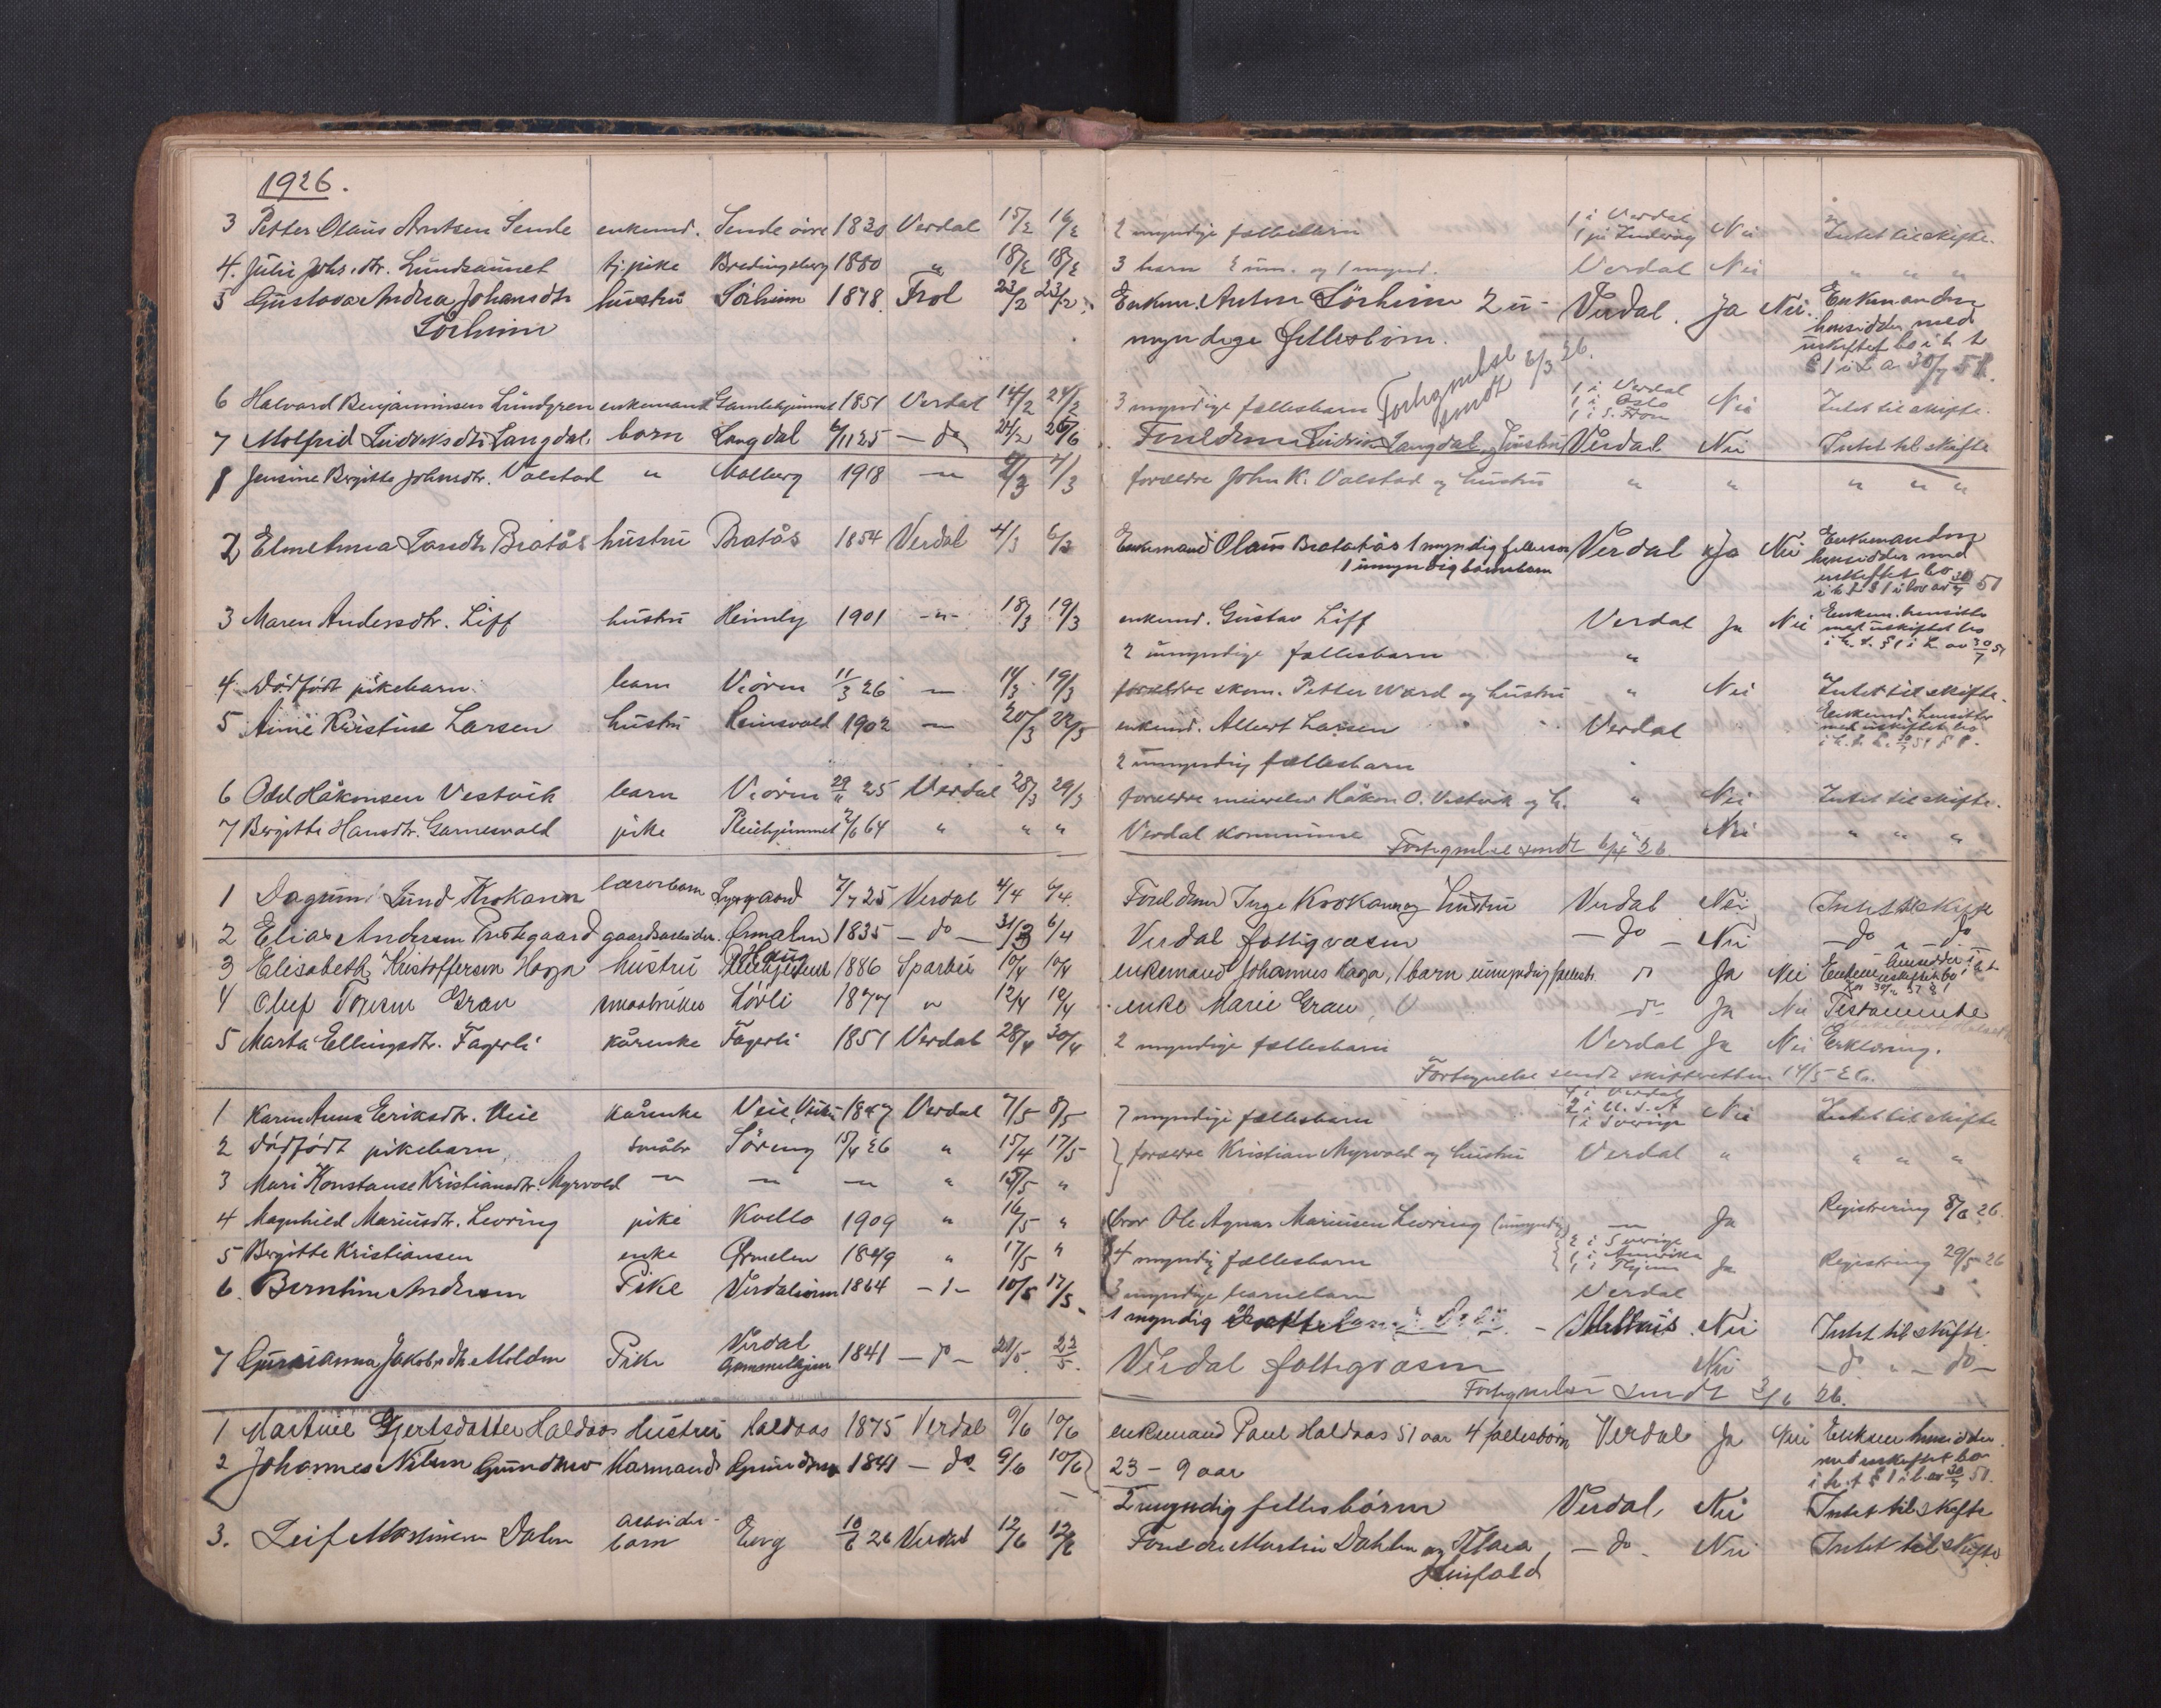 1926.
3 Petter Olaus Arntsen Sende enkemd. Sende övre 1830 Verdal 15/2 16/2 2 myndige fællesbarn 1 i Verdal 1 på Inderöy Nei Intet til skifte.
4. Julie Johs.dtr. Lundsaunet tj.pike Bredingsberg 1880 " 18/2 18/2 3 barn 2 um. og 1 mynd. Verdal Nei " " "
5 Gustava Andrea Johansdtr hustru Sörheim 1878. Frol 23/2 23/2 Enkem. Anton Sörheim 2 u- Verdal. Ja Nei. Enkemanden
Sörheim myndige fellesbörn. hensidder med
uskiftet bo i h t
§ 1 i L a 30/7 51.
Fortegnelse sendt 6/3 26.
6 Halvard Benjaminsen Lundgren enkemand Gamlehjemmet 1851 Verdal 14/2 24/2 3 myndige fællesbarn 1 i Verdal 1 i Oslo 1 i S. Fron Nei Intet til skifte.
7 Molfrid Ludviksdtr Langdal. barn Langdal 6/11 25 — do 24/2 26/6 Foreldrene Ludvik Langdal og Hustru Verdal Nei Intet til skifte
1 Jensine Bergitte Johnsdtr. Valstad " Molberg 1918 — " — 2/3 4/3 forældre John K. Valstad og hustru " " " " "
2 Elen Anna Larsdtr Bratås hustru Bratås 1854 Verdal 4/3 6/3 Enkemand Olaus Bratås 1 myndig felles Verdal Ja Nei Enkemanden
1 umyndig barnebarn hensidder med
uskiftet bo
i h t § 1 i lov av 30/7 51
3 Maren Andersdtr. Liff hustru Heimly 1901 — " — 18/3 19/3 enkemd. Gustav Liff Verdal Ja Nei Enkem. hensitter
2 umyndige fællesbarn " med uskiftet bo
i h. t. § 1 i L. av 30/7 51
4. Dödfödt pikebarn. barn Viören 11/3 26 — 11/3 19/3 forældre skom. Petter Ward og hustru " Nei Intet til skifte.
5 Anne Kristine Larsen hustru Reinsvald 1902 — 20/3 22/3 enkemd. Albert Larsen Verdal Enkemd. hensitter
2 umyndig fællesbarn med uskiftet bo
6 Odd Håkonsen Vestvik barn Viören 29/11 25 Verdal 28/3 29/3 forældre Håkon O. Vestvik og h. " Nei Intet til skifte.
7 Bergitte Hansdtr. Garnesvald pike Pleiehjemmet 2/6 64 " " " Verdal kommune Nei " " "
Fortegnelse sendt 6/4 26.
1 Dagrun Lund Krokann lærerbarn Lyngaard 2/7 25 Verdal 4/4 6/4. Foreldrene Inge Krokann og Hustru Verdal Nei Intet til skifte
2 Elias Andersen Prestegaard gaardsarbeider Ørmelen 1835 — do — 31/3 6/4 Verdal fattigvæsen — do — Nei — do do
3 Elisabeth Kristoffersen Haga hustru Haug 1886 Sparbu 10/4 10/4 enkemand Johannes Haga, 1 barn umyndig fællesb. " Ja Nei Enkem. hensidder i
uskiftet bo i h t
4 Oluf Toresen Gran smaabruker Lövli 1877 " 12/4 12/4 enke Marie Gran, 0 do Ja Nei Testamente
5 Marta Ellingsdtr. Fagerli kårenke Fagerli 1851 Verdal 28/4 30/4 2 myndige fællesbarn Verdal Ja Nei Erklæring.
Fortegnelse sendt skifteretten 14/5 26.
1 Karen Anna Eriksdtr. Veie kårenke Veie, 1847 Verdal 7/5 8/5 7 myndige fællesbarn 4 i Verdal 2 i U.S.A 1 i Sverige Nei Intet til skifte
2 Dödfödt pikebarn, småbr Söreng 15/4 26 " 15/4 17/5 forældre Kristian Myrvold og hustru Verdal " " " "
3 Mari Konstanse Kristiansdtr. Myrvold — " — — " — — " — " 15/5 "
4 Magnhild Mariusdtr. Levring pike Kvello 1909 " 16/5 " bror Ole Agnar Mariusen Levring (umyndig) — " — Ja Registrering 8/6 26.
5 Bergitte Kristiansen enke Ørmelen 1849 " 17/5 " 4 myndig fællesbarn 2 i Sverige 1 i Amerika 1 i Hjemm Ja Registrering 29/5 26
3 myndige barnebarn Verdal
6. Berntine Andersen Pike Verdalsören 1864 — " — 10/5 17/5. 1 myndig — i Melhus Nei Intet til skifte.
7 Gurianna Jakobsdtr Molden Pike Verdal Gammelhjem 1841 — do — 20/5. 22/5. Verdal fattigvæsen Nei — do " — do —
Fortegnelse sendt 3/6 26.
1 Martine Gjertsdatter Haldaas Hustru Haldaas 1875 Verdal 9/6 10/6 enkemand Paul Haldaas 51 aar 4 fællesbörn Verdal Ja Nei Enkem hensidder
23 — 9 aar med uskiftet bo
i h. t § 1 i l. av 30/7 51.
2 Johannes Nilsen Grundmo Kårmand Grundmo 1841 — do 9/6 10/6 2 myndig fellesbörn Verdal, Nei Intet til skifte
3. Leif Martinsen Dalen arbeider-barn Berg 10/6 26 Verdal 12/6 12/6 Foreldre Martin Dahlen og Klara — do — Nei Intet til skifte